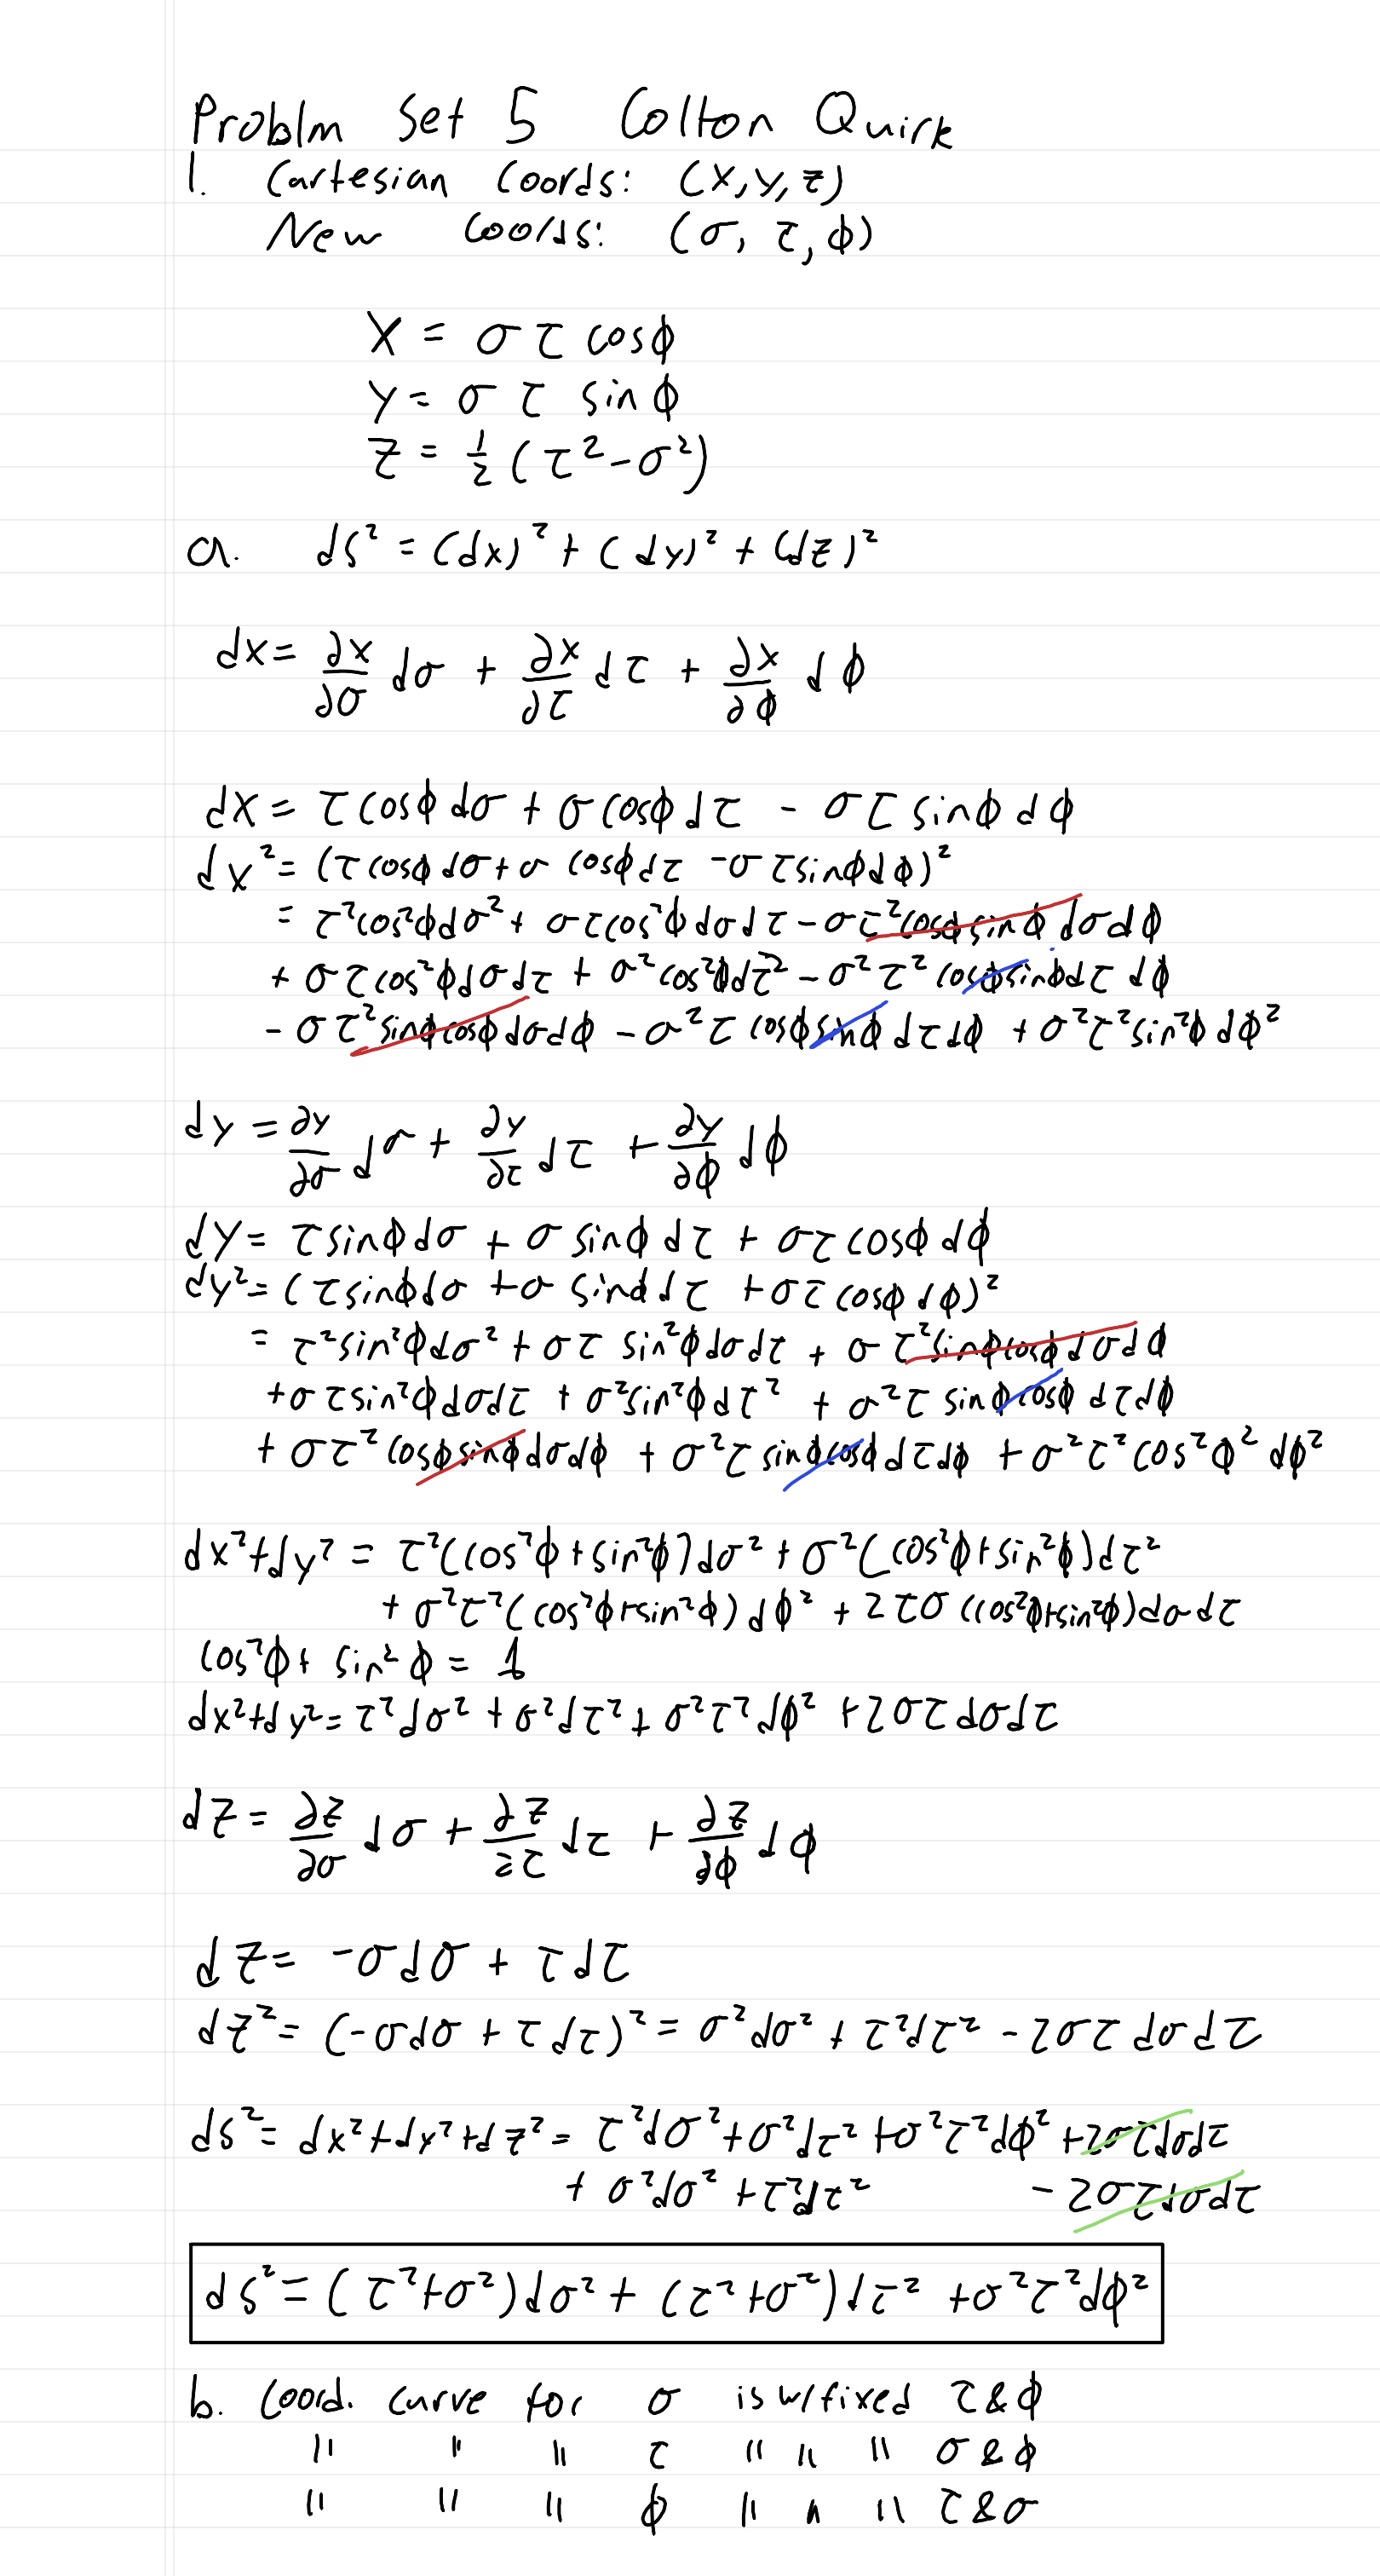 Problm Set 5 Colton Quirk
1. Cartesian Coords: (x,y,z)
New Coords: (σ, τ, ϕ)
X = σ τ cosϕ
Y = σ τ sin ϕ
Z = 1/2 (τ² - σ²)
a. ds² = (dx)² + (dy)² + (dz)²
dx = ∂x/∂σ dσ + ∂x/∂τ dτ + ∂x/∂ϕ dϕ
dx = τ cosϕ dσ + σ cosϕ dτ - σ τ sinϕ dϕ
dx² = (τ cosϕ dσ + σ cosϕ dτ - σ τ sinϕ dϕ)²
= τ²cos²ϕdσ² + στcos²ϕ dσdτ - στ²cosϕsinϕ dσdϕ
+ στcos²ϕdσdτ + σ²cos²ϕdτ² - σ²τ² cosϕsinϕdτ dϕ
- στ²sinϕcosϕdσdϕ - σ²τ cosϕsinϕ dτdϕ + σ²τ²sin²ϕ dϕ²
dy = ∂y/∂σ dσ + ∂y/∂τ dτ + ∂y/∂ϕ dϕ
dy = τsinϕdσ + σ sinϕ dτ + στcosϕ dϕ
dy² = (τsinϕdσ + σ sinϕ dτ + στcosϕ dϕ)²
= τ²sin²ϕdσ² + στ sin²ϕdσdτ + στ²sinϕcosϕdσdϕ
+στsin²ϕdσdτ + σ²sin²ϕdτ² + σ²τ sinϕcosϕ dτdϕ
+ στ²cosϕsinϕdσdϕ + σ²τsinϕcosϕdτdϕ + σ²τ²cos²ϕ² dϕ²
dx²+dy² = τ²(cos²ϕ+sin²ϕ)dσ² + σ²(cos²ϕ+sin²ϕ)dτ²
+ σ²τ²(cos²ϕ+sin²ϕ)dϕ² + 2τσ(cos²ϕ+sin²ϕ)dσdτ
cos²ϕ + sin²ϕ = 1
dx²+dy² = τ²dσ² + σ²dτ² + σ²τ²dϕ² + 2στdσdτ
dz = ∂z/∂σ dσ + ∂z/∂τ dτ + ∂z/∂ϕ dϕ
dz = -σdσ + τdτ
dz² = (-σdσ + τdτ)² = σ²dσ² + τ²dτ² - 2στdσdτ
ds² = dx²+dy²+dz² = τ²dσ²+σ²dτ²+σ²τ²dϕ² +2στdσdτ
+ σ²dσ² + τ²dτ² - 2στdσdτ
ds² = (τ²+σ²)dσ² + (τ²+σ²)dτ² + σ²τ²dϕ²
b. Coord. curve for σ is w/fixed τ & ϕ
" " " τ " " " σ & ϕ
" " " ϕ " " " τ & σ